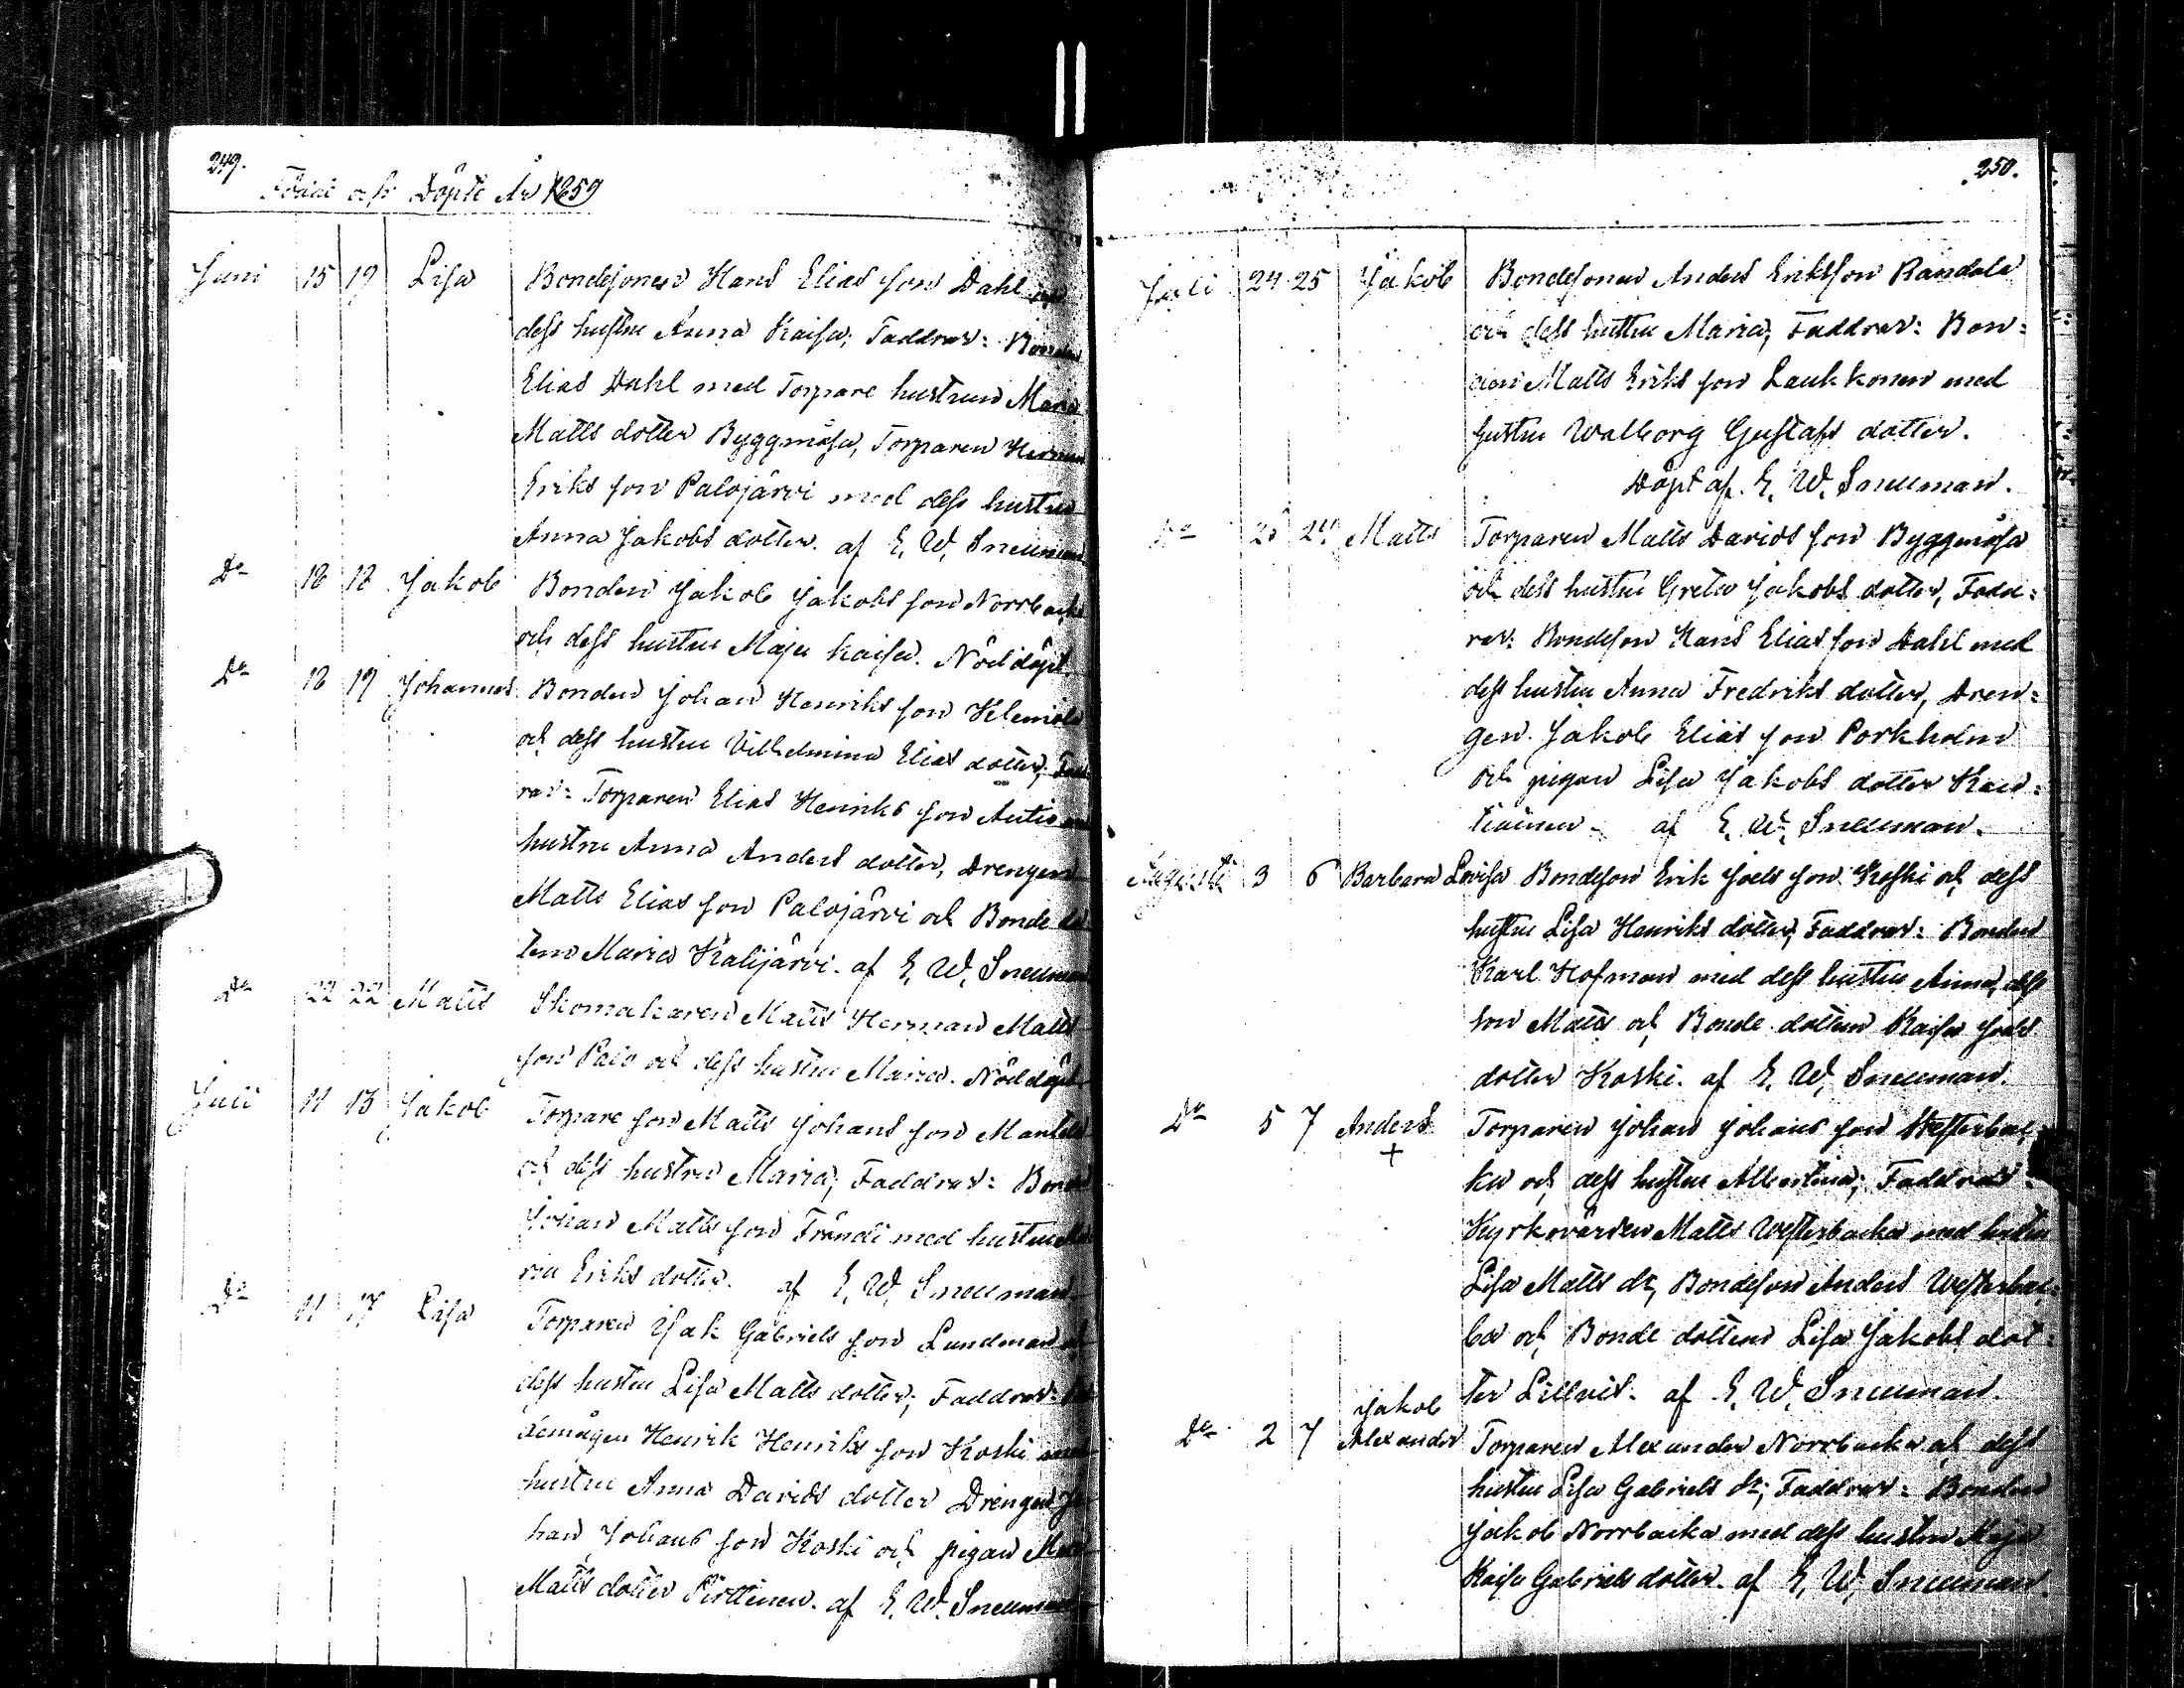 249.
Födde och Döpte År 1859
Juni 15 19 Lisa Bondesonen Hans Elias son Dahl och
dess hustru Anna Kaisa; Faddrar: Bonden
Elias Dahl med Torpare hustrun Maria
Matts dotter Byggmäsa, Torparen Herman
Eriks son Palojärvi med dess hustru
Anna Jakobs dotter. af E. W. Snellman
Do 18 18 Jakob Bonden Jakob Jakobs son Norrbacka
och dess hustru Maja Kaisa. Nöddöpt.
Do 18 19 Johannes Bonden Johan Henriks son Klemola
och dess hustru Vilhelmina Elias dotter; Fadd
rar: Torparen Elias Henriks son Autio
hustru Anna Anders dotter, Drengen
Matts Elias son Palojärvi och Bonde dot
tern Maria Kalijärvi. af E. W. Snellman
Do 22 22 Matts Skomakaren Matts Herman Matts
son Palo och dess hustru Maria. Nöddöpt
Juli 11 13 Jakob Torpare son Matts Johans son Mantela
och dess hustru Maria; Faddrar: Bonden
Johan Matts son Frändi med hustru Ma
ria Eriks dotter. af E. W. Snellman
Do 11 17 Lisa Torparen Isak Gabriels son Lundman och
dess hustru Lisa Matts dotter; Faddrar:
demågen Henrik Henriks son Koski med
hustru Anna Davids dotter Drengen Jo
han Johans son Koski och pigan
Matts dotter Pirttinen. af E. W. Snellman
250.
Juli 24 25 Jakob Bondesonen Anders Eriksson Randala
och dess hustru Maria; Faddrar: Bon=
den Matts Eriks son Laukkonen med
hustru Walborg Gustafs dotter.
Döpt af. E. W. Snellman.
Do 24 Matts Torparen Matts Davids son Byggmäsa
och dess hustru Greta Jakobs dotter, Fadd=
rar: Bondeson Hans Elias son Dahl med
dess hustru Anna Fredriks dotter, Dren=
gen Jakob Elias son Porkholm
och pigan Lisa Jakobs dotter Kau=
tiainen. af E. W. Snellman.
Augusti 3 6 Barbara Lovisa Bondeson Erik Joels son Koski och dess
hustru Lisa Henriks dotter; Faddrar: Bonden
Karl Hofman med dess hustru Anna, dess
son Matts och Bonde dottern Kaisa Joels
dotter Koski. af E. W. Snellman.
Do 5 7 Anders + Torparen Johan Johans son Westerbac=
ka och dess hustru Albertina; Faddrar:
Kyrkovärden Matts Westerbacka med hustru
Lisa Matts dr, Bondeson Anders Westerbac=
ka och Bonde dottern Lisa Jakobs dot=
ter Lillqvist. af E. W. Snellman
Do 2 7 Jakob Alexander Torparen Alexander Norrbacka och dess
hustru Lisa Gabriels dr; Faddrar: Bonden
Jakob Norrbacka med dess hustru Maja
Kaisa Gabriels dotter. af E. W. Snellman.